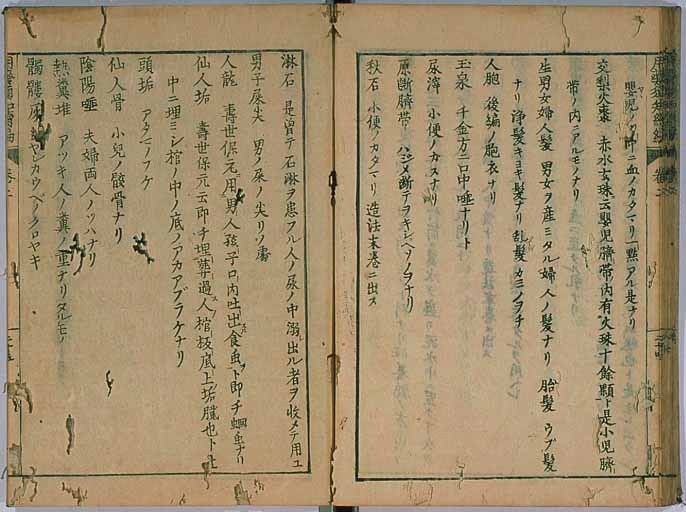 嬰児ノ
血ノカタマリ一點アル是ナリ
交梨火棗 赤水玄珠云嬰児臍帯内有火珠十餘顆ト是小児臍
帯ノ内ニアルモノナリ
生男女婦人髪 男女ヲ産ミタル婦人ノ髪ナリ 胎髪 ウブ髪
ナリ 浄髪キヨキ髪ナリ 乱髪 カミノヲチ
人胞 後編ノ胞衣ナリ
玉泉 千金方ニ口中唾ナリト
尿滓 小便ノカスナリ
原断臍帯 ハジメ断テヲキシヘソノヲナリ
秋石 小便ノカタマリ 造法末巻ニ出ス
淋石 是曽テ石淋ヲ患フル人ノ尿ノ中溺出ル者ヲ收メテ用ユ
男子屎尖 男ノ屎ノ尖リソ
人龍 壽世保元ニ用男人孩子口内吐出食虫ヲト即チ蛔虫ナリ
仙人垢 壽世保元云即チ埋葬過人棺板底上垢膩也ト土
中ニ埋ミシ棺ノ中ノ底ノアカアブラケナリ
頭垢 アタマノフケ
仙人骨 小児ノ骸骨ナリ
陰陽唾 夫婦両人ノツハナリ
熱糞堆 アツキ人ノ糞ノ重ナリタルモノ
髑髏灰 カウベノクロヤキ